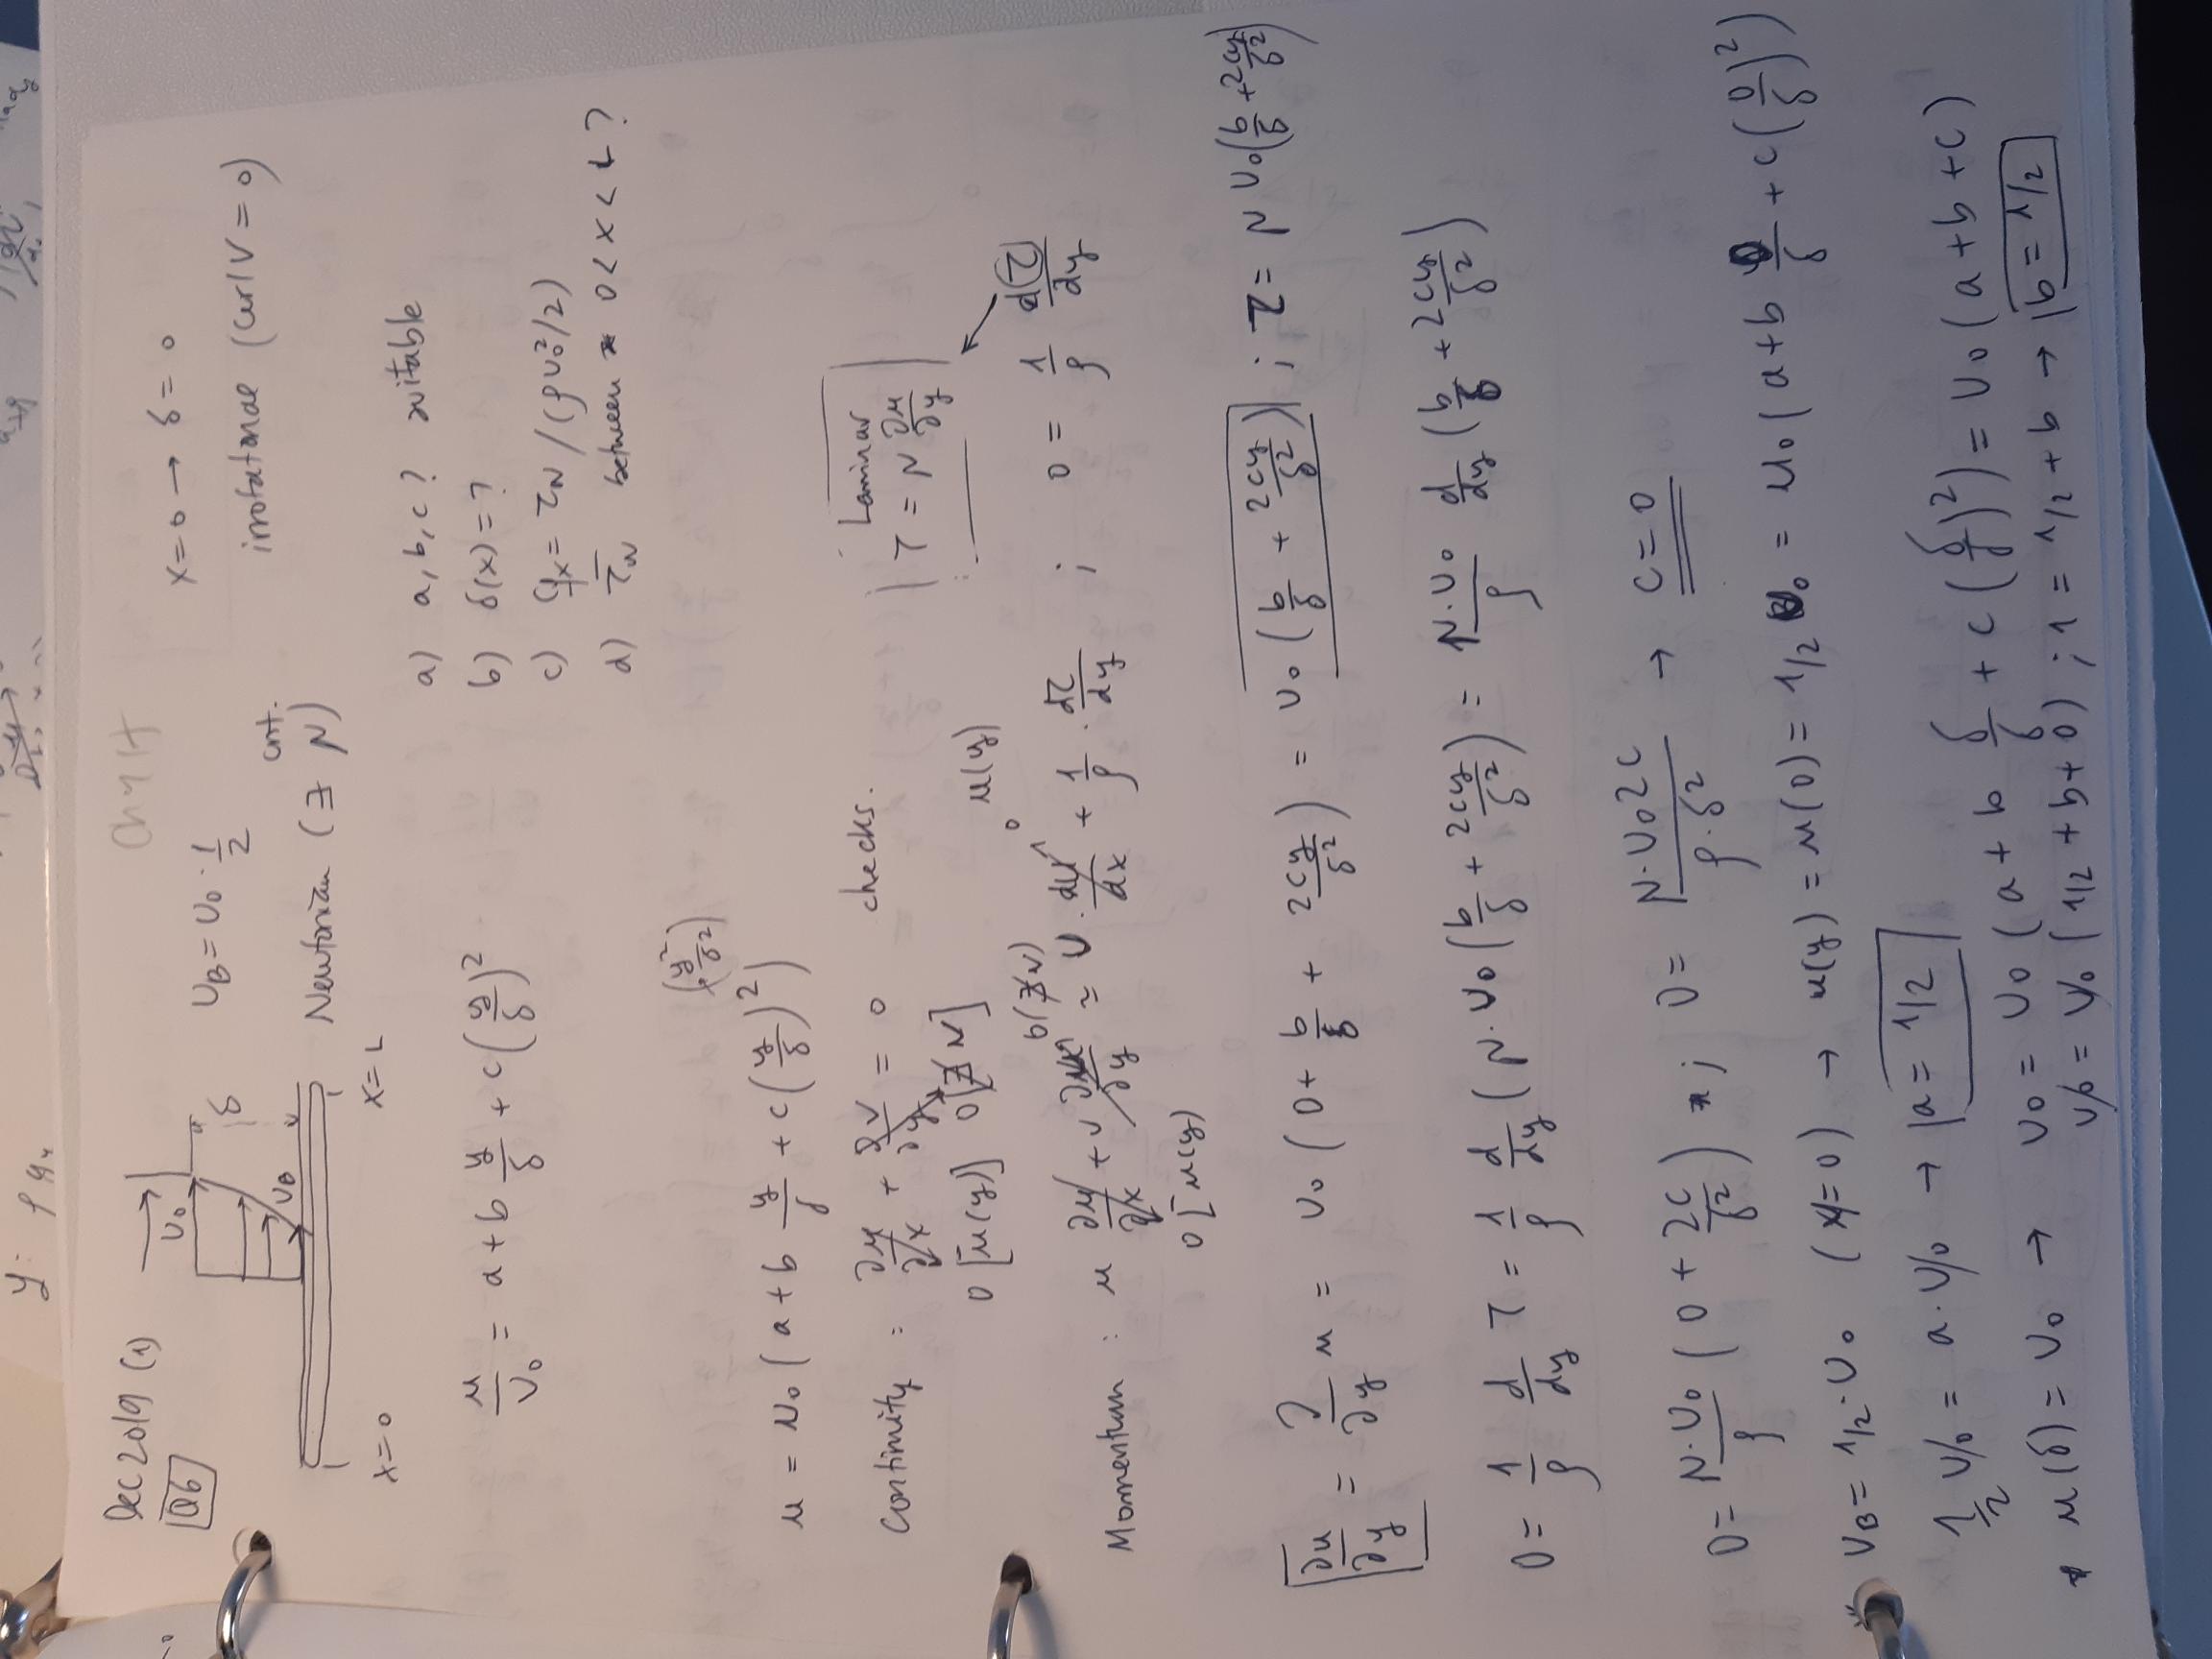 y: ρ g
Dec 2019 (1)
Q6
Ch 4
U₀
δ
U_B
x=0
x=L
U_B = U₀ · 1/2
cnt.
Newtonian (∃ μ)
x=0 → δ = 0
irrotational (curl V = 0)
a) a, b, c? suitable
b) δ(x) = ?
c) C_fx = τ_w / (ρ U₀²/2)
d) τ̄_w between 0 < x < L ?
u/U₀ = a + b y/δ + c (y/δ)²
(y²/δ²)
u = U₀ (a + b y/δ + c (y/δ)²)
Continuity : ∂u/∂x + ∂v/∂y = 0 checks.
0 [u(y)] 0 [∄ v]
Laminar
τ = μ ∂u/∂y
0 (∄ v) 0 u(y)
Momentum : u ∂u/∂x + v ∂u/∂y ≈ U · dU/dx + 1/ρ · dτ/dy ; 0 = 1/ρ d(τ)/dy
0 [u(y)
∂u/∂y = ∂/∂y u = U₀ (0 + b/δ + 2cy/δ²) = U₀ (b/δ + 2cy/δ²) ; τ = μ U₀ (b/δ + 2cy/δ²)
0 = 1/ρ d/dy τ = 1/ρ d/dy (μ · U₀ (b/δ + 2cy/δ²) = μ · U₀/ρ d/dy (b/δ + 2cy/δ²)
0 = μ · U₀/ρ (0 + 2c/δ²) ; 0 = μ · U₀ 2c/ρ · δ² → c = 0
* U_B = 1/2 · U₀ (x=0) → u(y) = u(0) = 1/2 U₀ = u₀ (a + b 0/δ + c (0/δ)²)
1/2 U₀ = a · U₀ → a = 1/2
* u(δ) = U₀ → U₀ = U₀ (a + b δ/δ + c (δ/δ)²) = U₀ (a + b + c)
U₀ = U₀ (1/2 + b + 0) ; 1 = 1/2 + b → b = 1/2